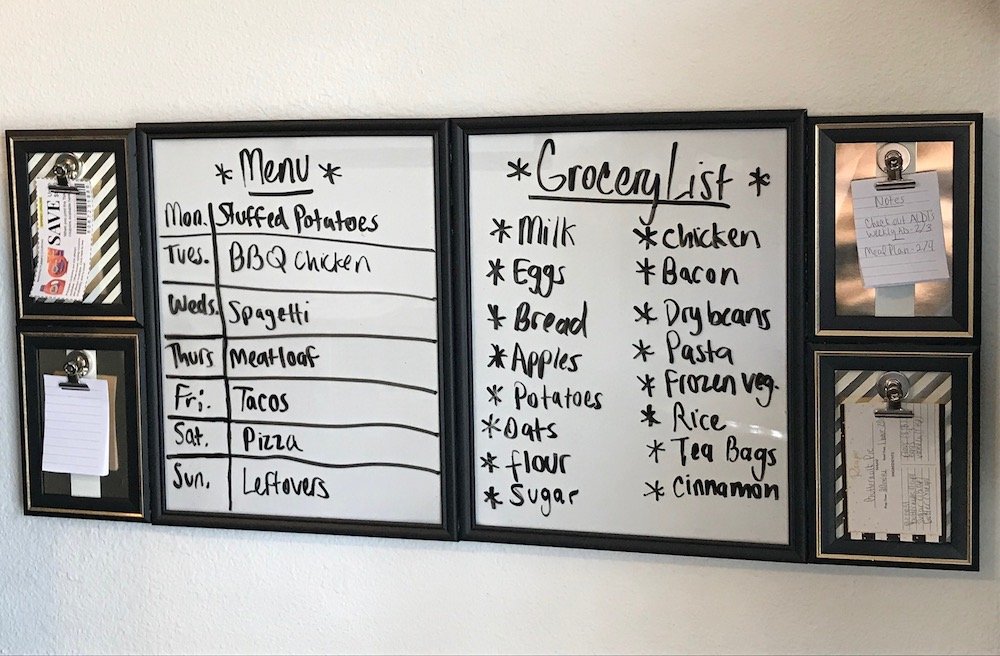 SAVE
* Menu *
Mon. Stuffed Potatoes
Tues. BBQ Chicken
Weds. Spagetti
Thurs Meatloaf
Fri. Tacos
Sat. Pizza
Sun. Leftovers
* Grocery List *
* Milk
* Eggs
* Bread
* Apples
* Potatoes
* Oats
* flour
* Sugar
* chicken
* Bacon
* Dry beans
* Pasta
* Frozen veg.
* Rice
* Tea Bags
* Cinnamon
Notes
Check out ALDI's
weekly Ad - 2/3
Meal Plan - 2/4